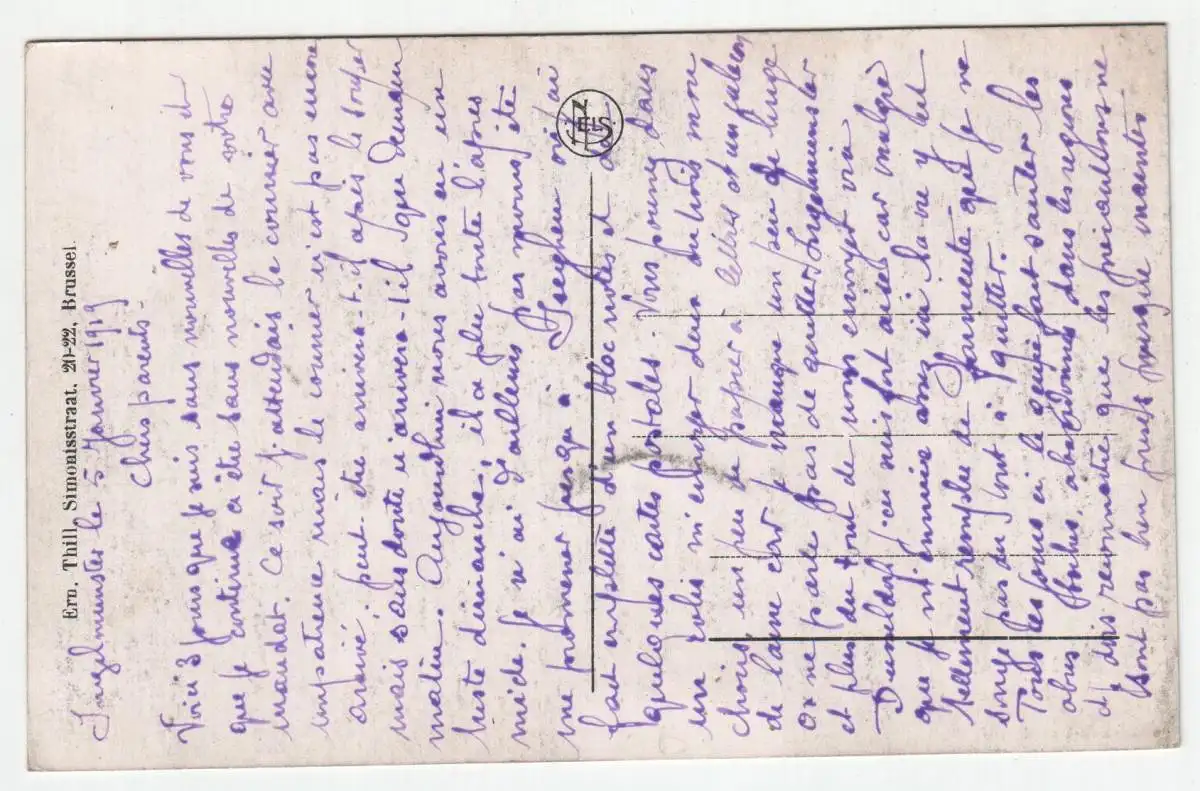 Ern. Thill, Simonisstraat, 20-22, Brussel.
NELS
Ingelmunster le 5 Janvier 1919
Chers parents.
Voici 3 jours que je suis sans nouvelles de vous et
que je continue à être sans nouvelles de votre
mandat. Ce soir j'attendais le courrier avec
impatience mais le courrier n'est pas encore
arrivé; peut-être arrivera-t-il après le souper
mais sans doute n'arrivera-t-il que demain
matin. Aujourd'hui nous avons eu un
triste dimanche; il a plu toute l'après
midi. Je n'ai d'ailleurs pas moins été
me promener jusqu'à Iseghem où j'ai
fait emplette d'un bloc notes et de
quelques cartes postales. Vous pouvez dans
un colis m'envoyer dans du bois mon
un peu de papier à lettres et un
de laine car je manque un peu de linge
On ne parle pas de quitter Ingelmunster
et plus du tout de nous envoyer via
Dusseldorf. J'en suis fort aise car malgré
que je m'ennuie assez ici la vie y est
tellement remplie de que je ne
songe pas du tout à quitter.
Tous les jours ici le génie fait sauter les
obus Boches abandonnés dans les régions
et je dois reconnaître que les ne
sont pas bien jusque maintes